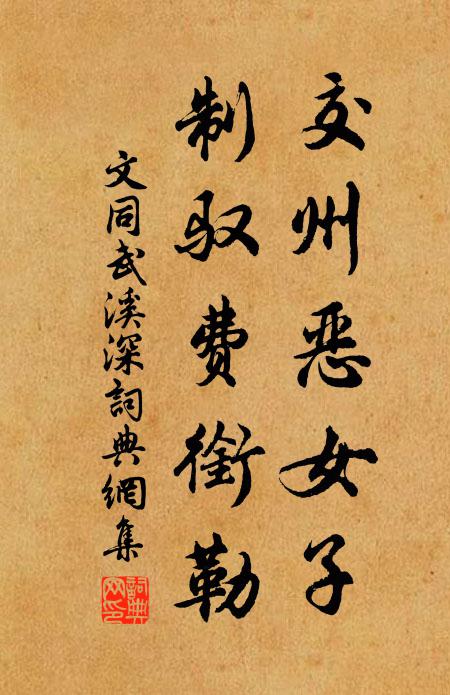 交州恶女子
制驭费銜勒
文同武溪深詞典網集
詞典